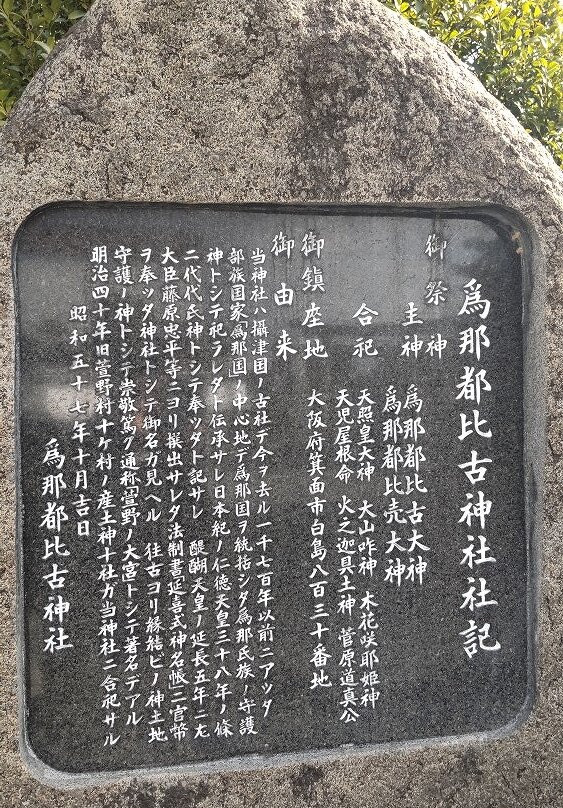 爲那都比古神社社記
御祭神
主神　爲那都比古大神
爲那都比売大神
合祀　天照皇大神　大山咋神　木花咲耶姫神
天児屋根命　火之迦具土神　菅原道真公
御鎮座地　大阪府箕面市白島八百三十番地
御由来
当神社ハ攝津国ノ古社デ今ヲ去ル一千七百年以前ニアッタ
部族国家「爲那国」ノ中心地デ爲那国ヲ統括シタ爲那氏族ノ守護
神トシテ祀ラレタト伝承サレ日本紀ノ仁徳天皇三十八年ノ條
ニ代代氏神トシテ奉ッタト記サレ　醍醐天皇ノ延長五年ニ左
大臣藤原忠平等ニヨリ撰出サレタ法制書「延喜式神名帳」ニ官幣
ヲ奉ッタ神社トシテ御名ガ見ヘル　往古ヨリ縁結ビノ神土地
守護ノ神トシテ崇敬篤ク通称「萱野ノ大宮」トシテ著名デアル
明治四十年旧萱野村十ケ村ノ産土神十社ガ当神社ニ合祀サル
昭和五十七年十月吉日
爲那都比古神社